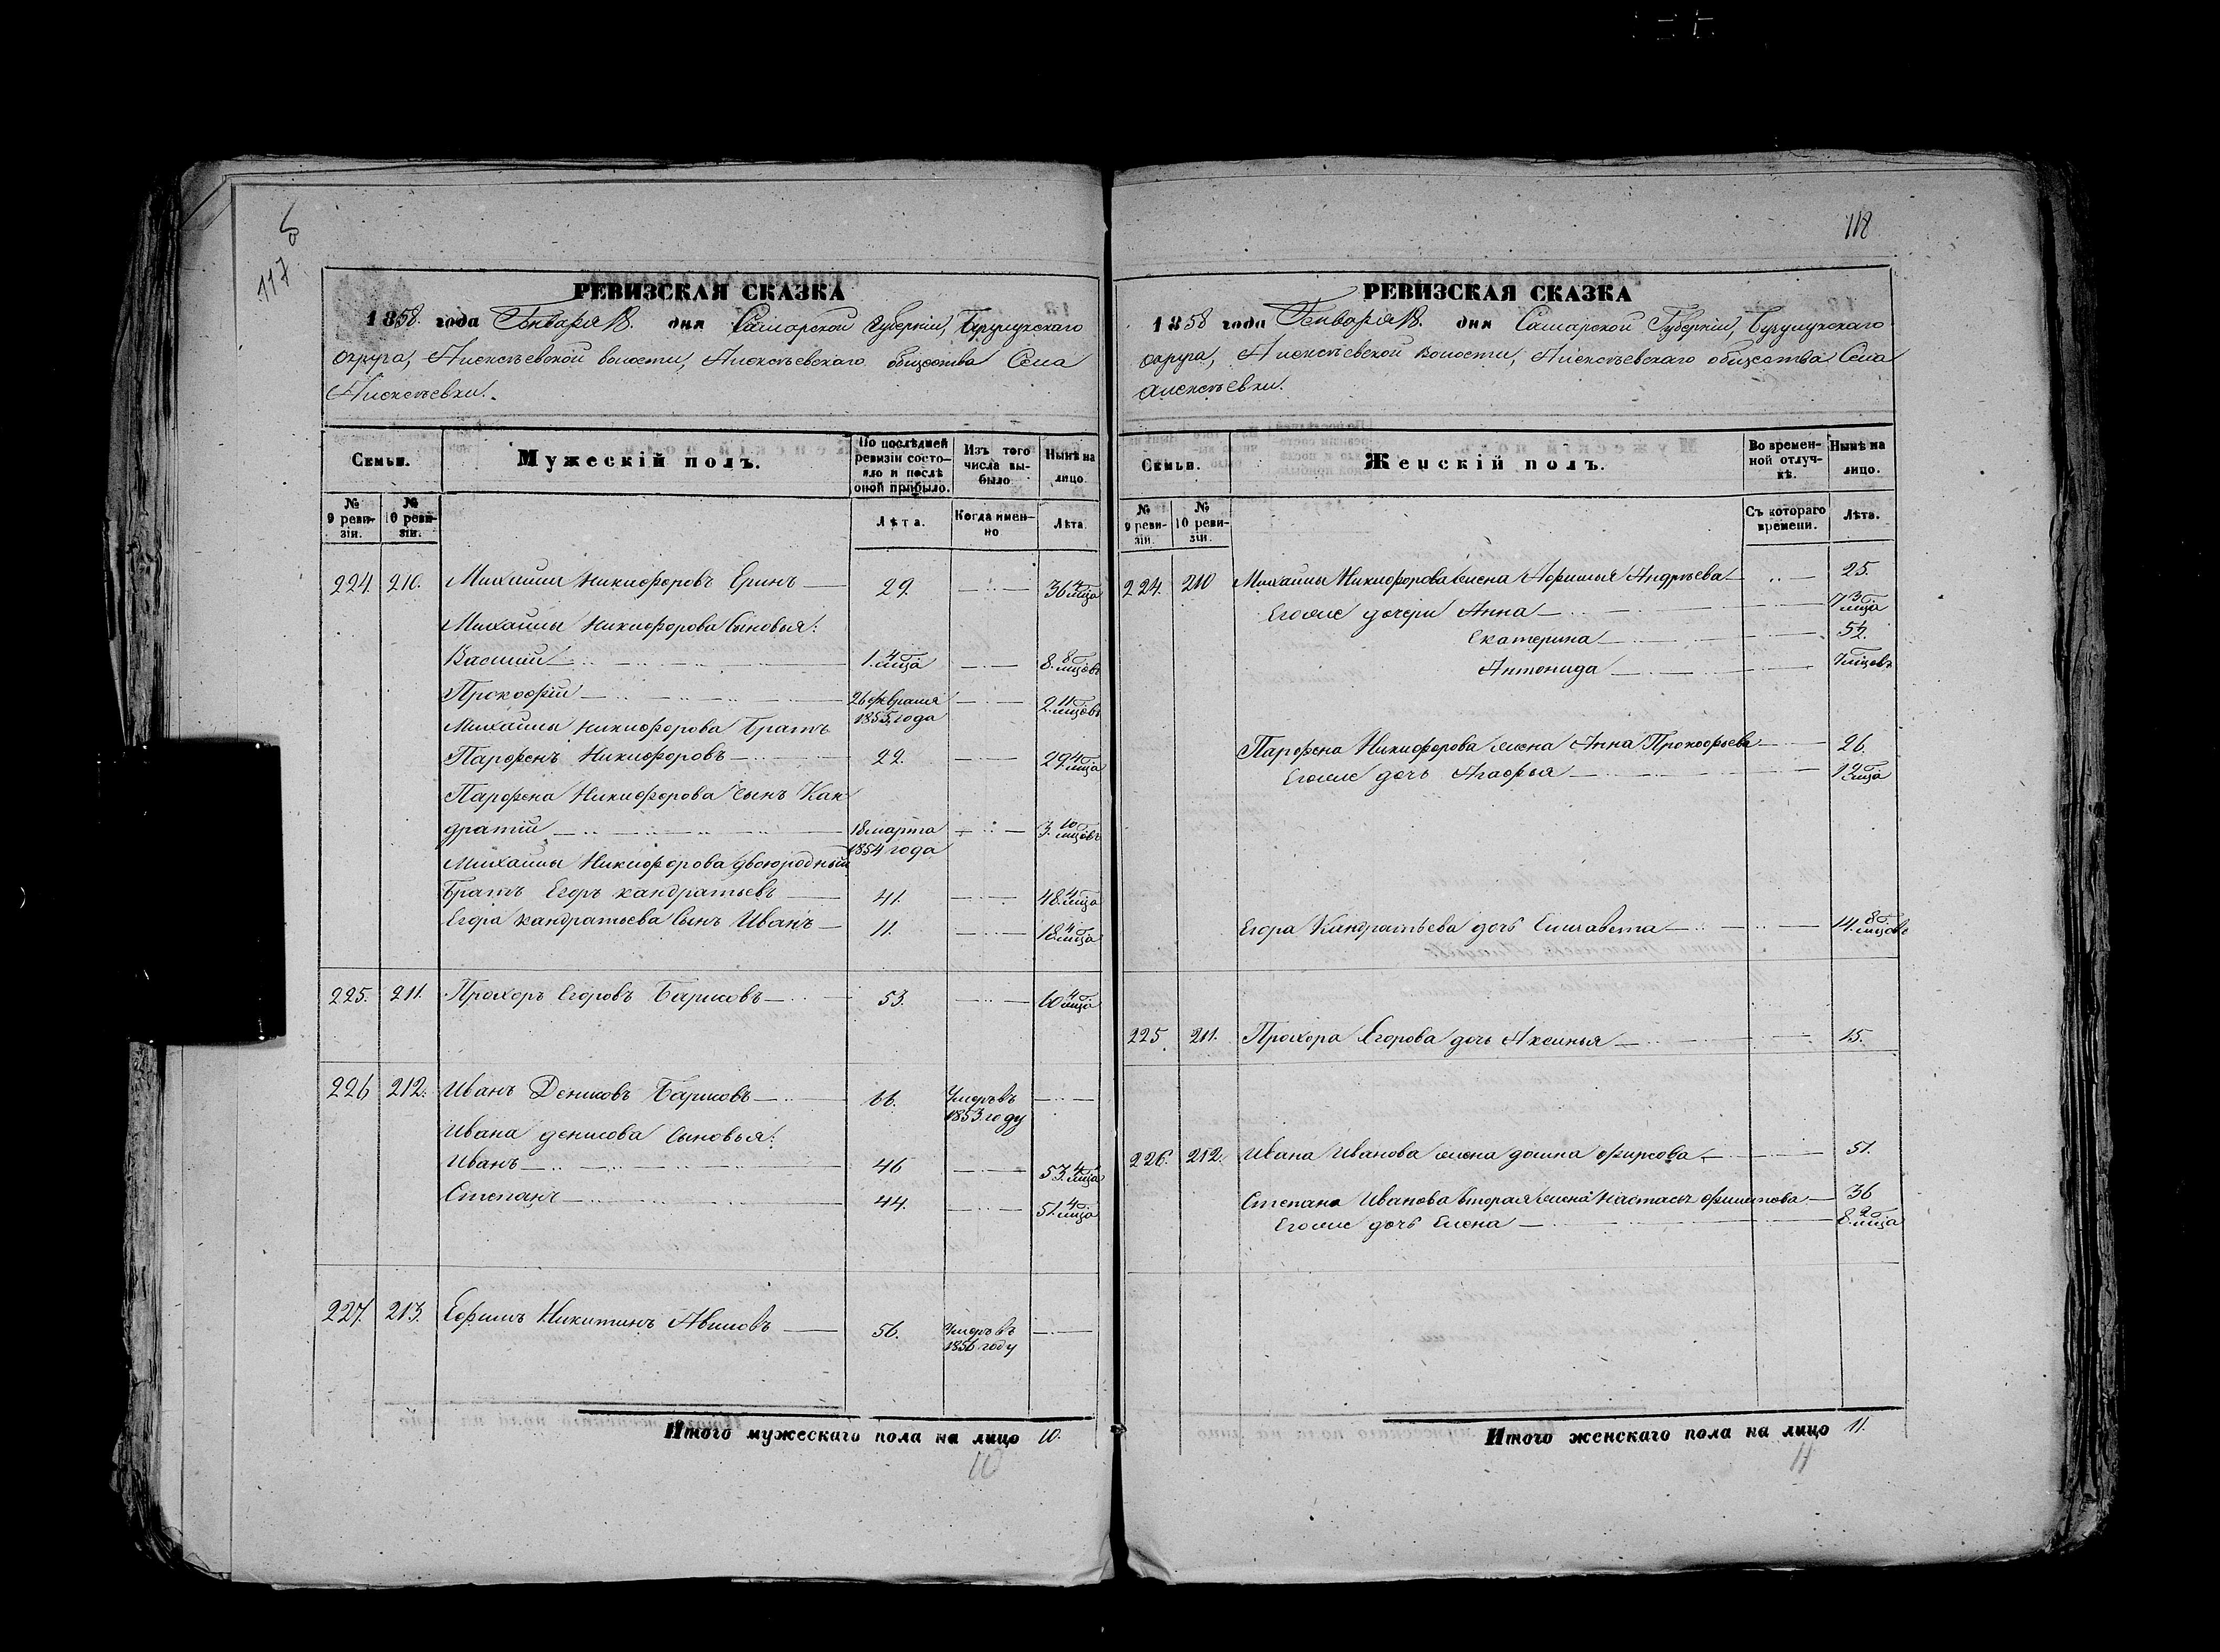 117
118
РЕВИЗСКАЯ СКАЗКА
1858. года Генваря 18. дня Самарской Губерніи, Бузулукскаго
округа, Алексѣевской волости, Алексѣевскаго общества Села
Алексѣевки.
Семьи.
Мужескій полъ.
По послѣдней ревизіи состояло и послѣ оной прибыло.
Изъ того числа выбыло
Нынѣ на лицо.
№ 9 ревизіи.
№ 10 ревизіи.
Лѣта.
Когда именно
Лѣта.
224. 210. Михаилъ Никифоровъ Еринъ 29. 36 4 мца
Михаилы Никифорова Сыновья:
Василій 1. 4 мца 8. 8 мцовъ
Прокофій 26 февраля 1855 года 2. 11 мцовъ
Михаилы Никифорова Братъ
Парфенъ Никифоровъ 22. 29 4 мца
Парфена Никифорова Сынъ Кан
дратій 18 марта 1854 года 3. 10 мцовъ
Михаилы Никифорова двоюродный
Братъ Егоръ кандратьевъ 41. 48. 4 мца
Егора кандратьева Сынъ Иванъ 11. 18. 4 мца
225. 211. Прохоръ Егоровъ Барисовъ 53. 60 4 мца
226 212. Иванъ Денисовъ Барисовъ 66. Умеръ въ 1853 году
Ивана денисова Сыновья:
Иванъ 46 53. 4 мца
Степанъ 44. 51. 4 мца
227. 213. Ефимъ Никитинъ 56. Умеръ въ 1856 году
Итого мужескаго пола на лицо 10.
10
РЕВИЗСКАЯ СКАЗКА
1858 года Генваря 18. дня Самарской Губерніи, Бузулукскаго
округа, Алексѣевской Волости, Алексѣевскаго общества Села
Алексѣевки.
Семьи.
Женскій полъ.
Во временной отлучкѣ.
Нынѣ на лицо.
№ 9 ревизіи.
№ 10 ревизіи.
Съ котораго времени.
Лѣта.
224. 210 Михаилы Никифорова жена Афимья Андрѣева 25.
Егоже дочери Анна 7 3 мца
Екатерина 5½.
Антонида 7 мцовъ
Парфена Никифорова жена Анна Прокофьева 26.
Егоже дочь Агафья 1 2 мца
Егора Кандратьева дочь Елизавета 14. 8 мцовъ
225. 211. Прохора Егорова дочь Аксинья 15.
226. 212. Ивана Иванова жена домна фирсова 51.
Степана Иванова вторая жена Настасья филипова 36
Егоже дочь Елена 8. 2 мца
Итого женскаго пола на лицо 11.
11